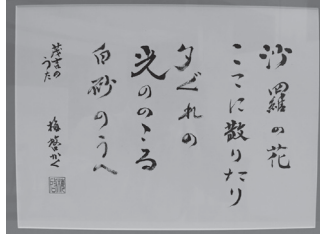 沙羅の花
ここに散りたり
夕ぐれの
光ののこる
白砂のうへ
茂吉のうた